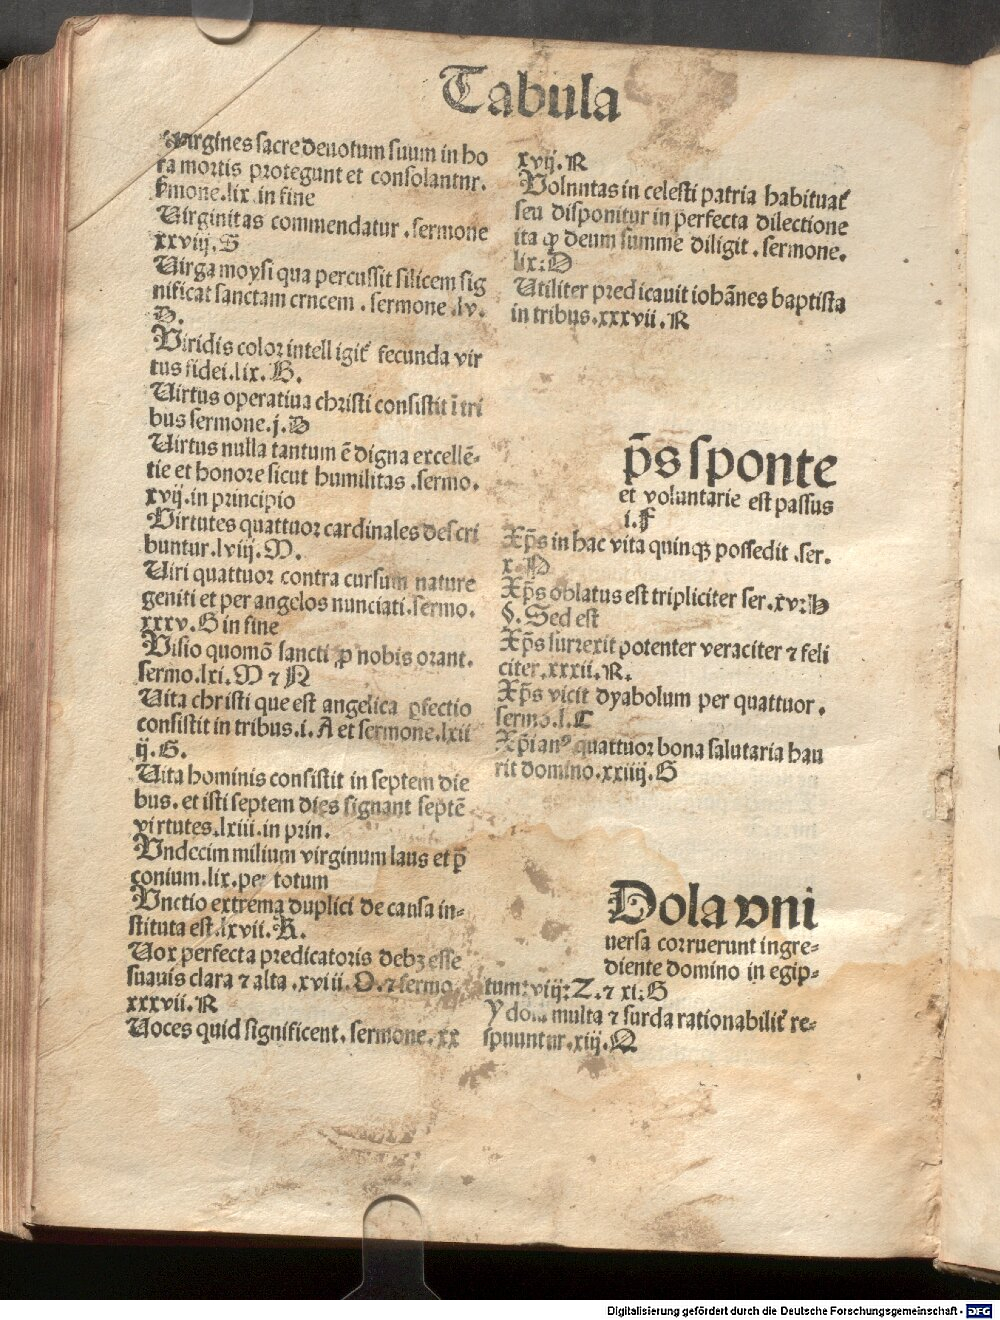 Tabula
Virgines sacre deuotum suum in ho
ra mortis protegunt et consolantnr.
sermone.lix.in fine
Uirginitas commendatur .sermone
xxviij.S
Uirga moysi qua percussit silicem sig
nificat sanctam crncem .sermone .lv.
D.
Viridis color intell igit᷒ fecunda vir
tus fidei.lix.B.
Uirtus operatiua christi consistit ī tri
bus sermone.j.D
Uirtus nulla tantum ē digna excellē-
tie et honore sicut humilitas .sermo.
xvij.in principio
Virtutes quattuor cardinales descri
buntur.lviij.M.
Uiri quattuor contra cursum nature
geniti et per angelos nunciati.sermo.
xxxv.G in fine
Visio quomō sancti ꝓ nobis orant.
sermo.lxi.M ⁊ N
Uita christi que est angelica ꝑfectio
consistit in tribus.i.A et sermone.lxii
ij.G.
Uita hominis consistit in septem die
bus.et isti septem dies signant septē
virtutes.lxiii.in prin.
Vndecim milium virginum laus et p̄
conium.lix.per totum
Vnctio extrema duplici de causa in-
stituta est.lxvii.K.
Uox perfecta predicatoris debꝫ esse
suauis clara ⁊ alta .xviii.O.⁊ sermo.
xxxvii.R
Uoces quid significent. sermone.xx
xvij.R
Volnntas in celesti patria habituat᷒
seu disponitur in perfecta dilectione
ita ꝙ deum summe diligit .sermone.
lix:D
Utiliter predicauit iohānes baptista
in tribus.xxxvii.R
p̄s sponte
et voluntarie est passus
i.F
Xp̄s in hac vita quinqꝫ possedit .ser.
x.N
Xp̄s oblatus est tripliciter ser.xv:H
§.Sed est
Xp̄s surrexit potenter veraciter ⁊ feli
citer.xxxii.R.
Xp̄s vicit dyabolum per quattuor.
sermo.l.C
Xp̄ianꝰ quattuor bona salutaria hau
rit domino.xxiiij.G
Dola vni
uersa corruerunt ingre-
diente domino in egip-
tum:viij:Z.⁊ xi:G
Y dola multa ⁊ surda rationabilit᷒ re-
spuuntur.xiij.Q
Digitalisierung gefördert durch die Deutsche Forschungsgemeinschaft - DFG